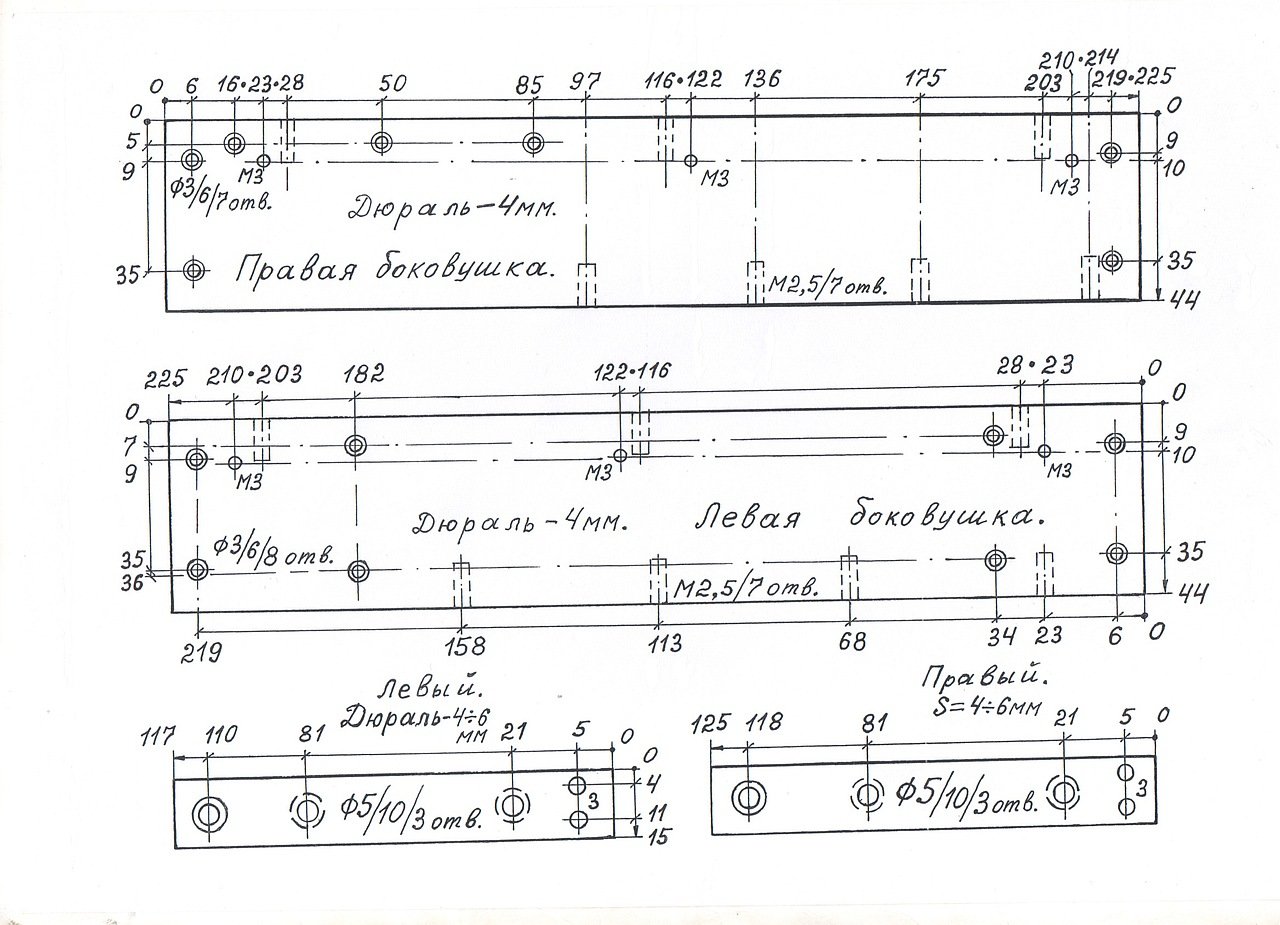 210•214
0 6 16•23•28 50 85 97 116•122 136 175 203 219•225
0 0
5 9
9 10
М3 М3 М3
Ф3/6/7отв.
Дюраль–4мм.
35 Правая боковушка. 35
М2,5/7отв.
44
225 210•203 182 122•116 28•23 0
0 0
7 9
9 10
М3 М3 М3
Дюраль–4мм. Левая боковушка.
Ф3/6/8 отв.
35 35
36 44
М2,5/7 отв.
219 158 113 68 34 23 6 0
Левый.
Дюраль-4÷6
мм
117 110 81 21 5 0
0
4
Ф5/10/3 отв. 3
11
15
Правый.
S=4÷6мм
125 118 81 21 5 0
Ф5/10/3отв. 3